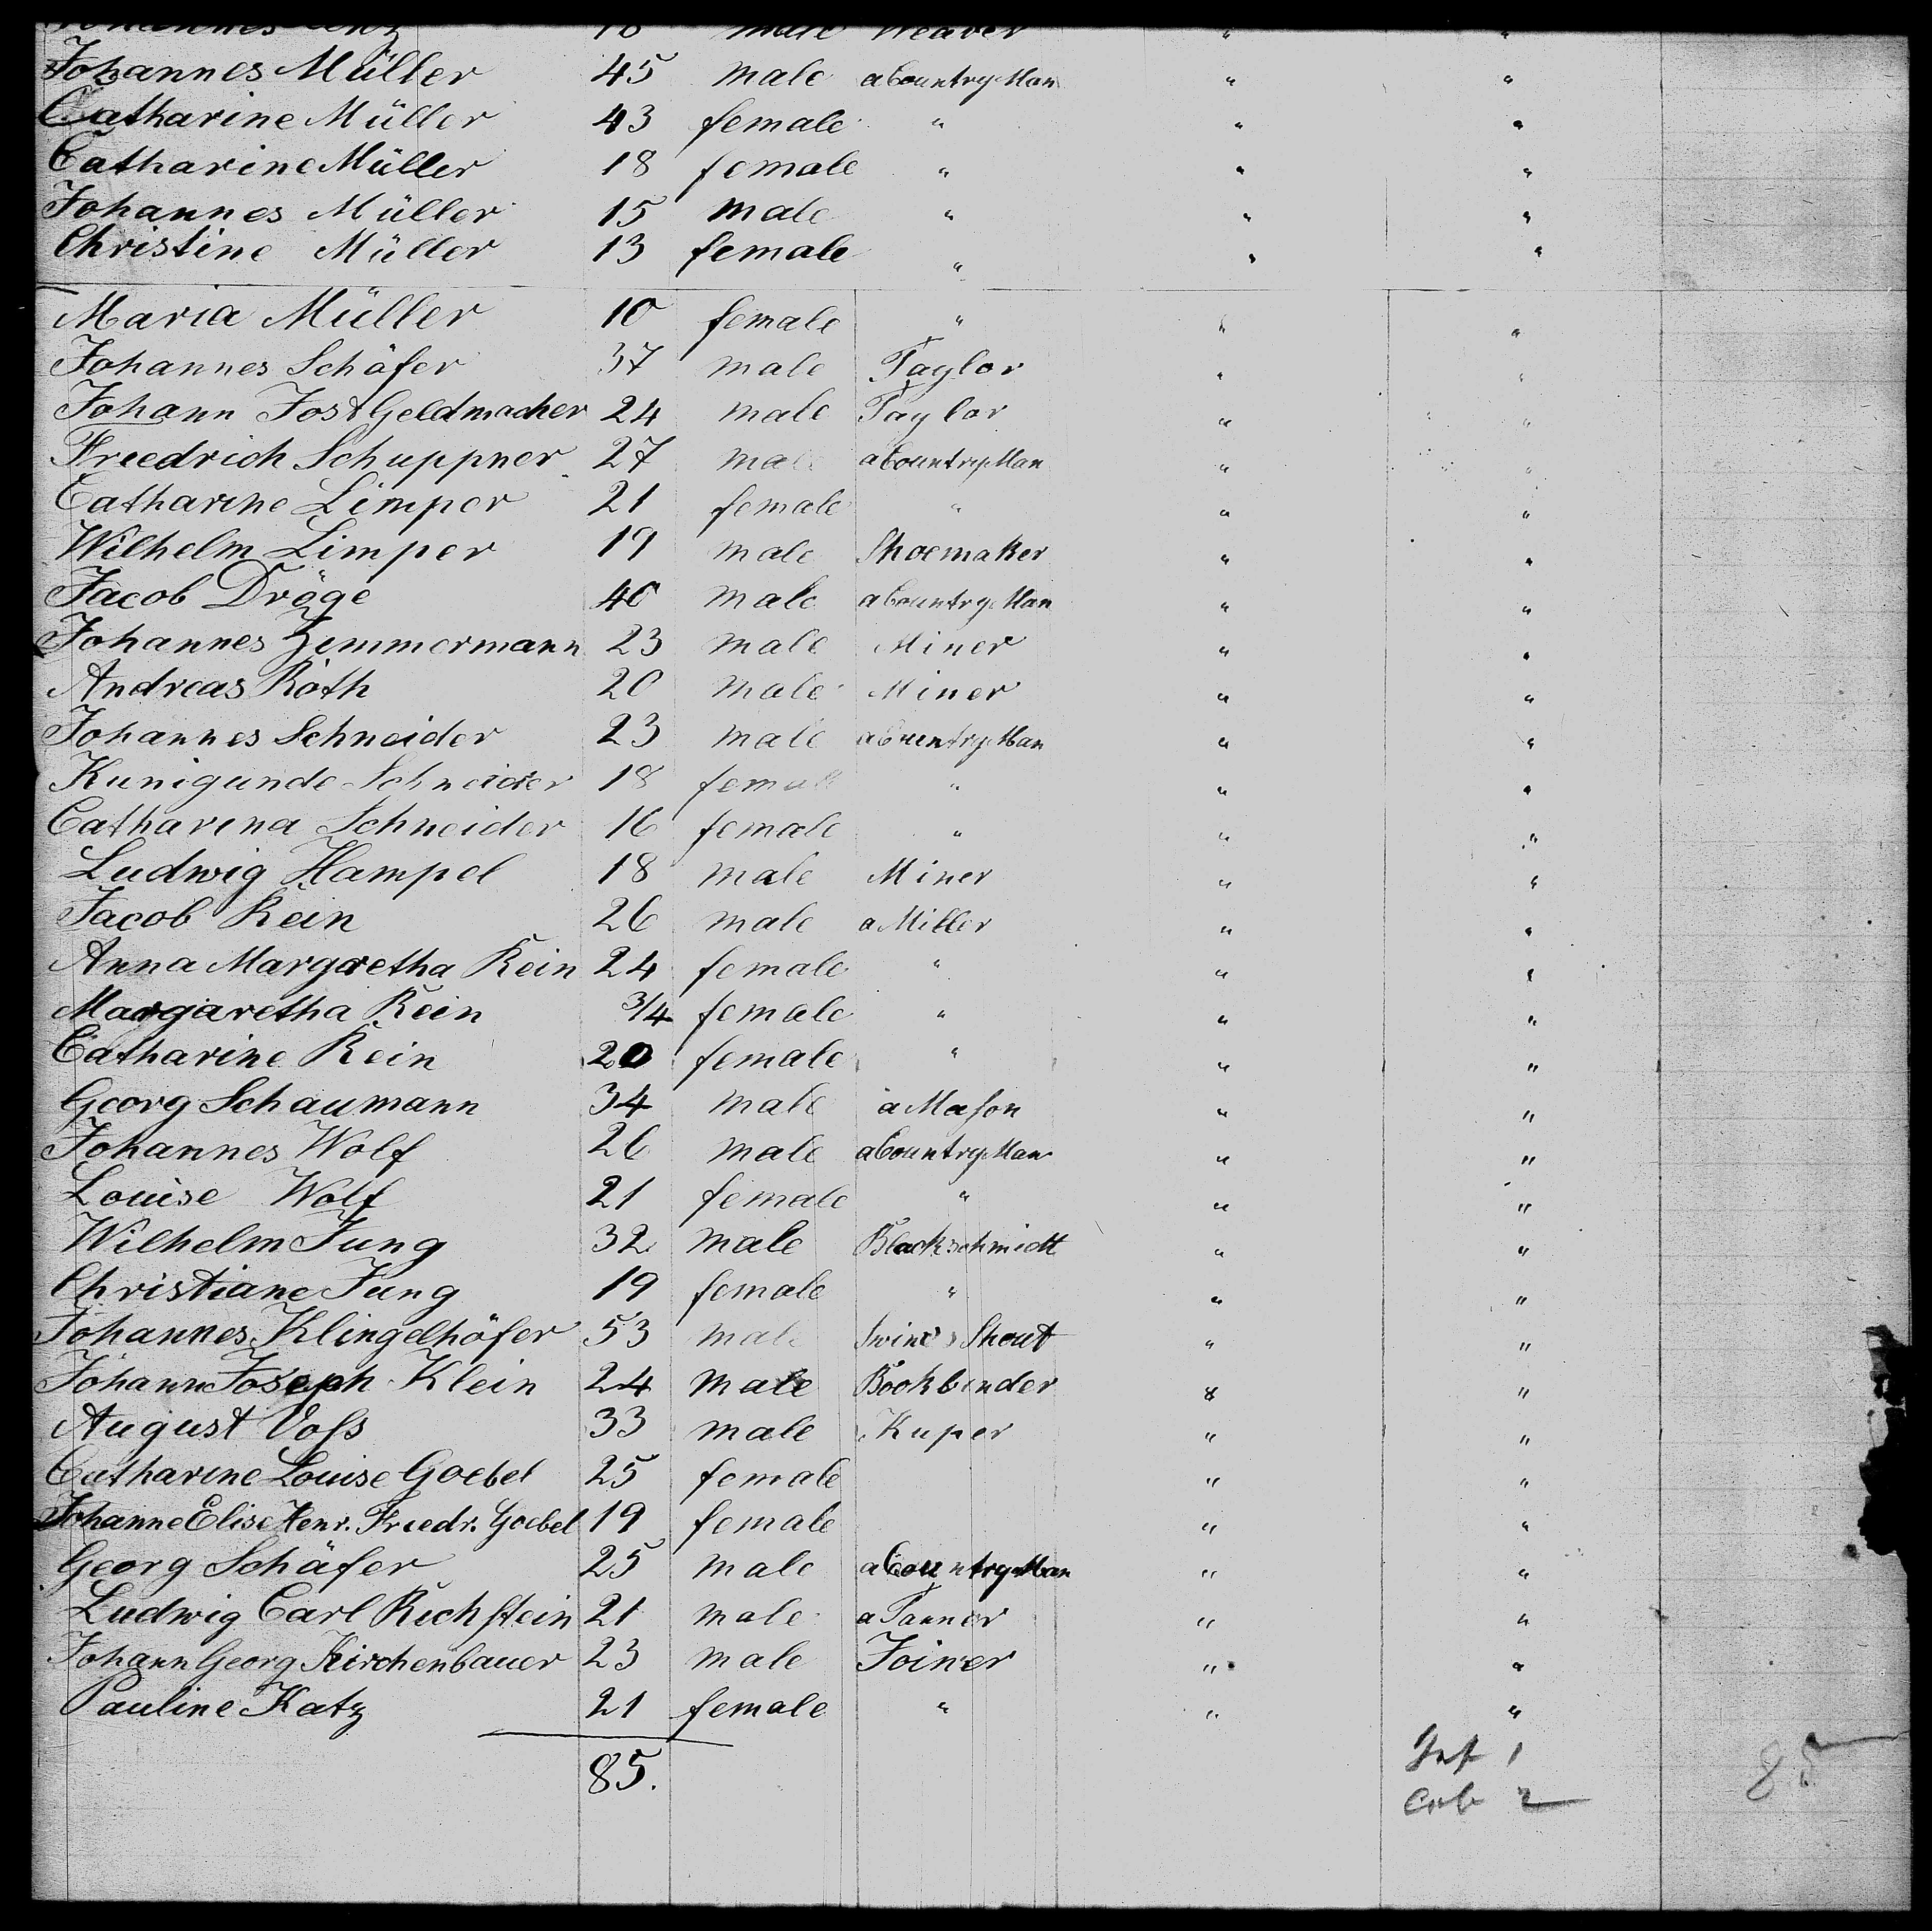 18 male Weaver " "
Johannes Müller 45 male a Country Man " "
Catharine Müller 43 female " " "
Catharine Müller 18 female " " "
Johannes Müller 15 male " " "
Christine Müller 13 female " " "
Maria Müller 10 female " " "
Johannes Schäfer 37 male Taylor " "
Johann Jost Geldmacher 24 male Taylor " "
Friedrich Schuppner 27 male a Country Man " "
Catharine Limper 21 female " " "
Wilhelm Limper 19 male Shoemaker " "
Jacob Dröge 40 male a Country Man " "
Johannes Zimmermann 23 male Miner " "
Andreas Roth 20 male Miner " "
Johannes Schneider 23 male a Country Man " "
Kunigunde Schneider 18 female " " "
Catharina Schneider 16 female " " "
Ludwig Hampel 18 male Miner " "
Jacob Rein 26 male a Miller " "
Anna Margaretha Rein 24 female " " "
Margaretha Rein 3/4 female " " "
Catharine Rein 20 female " " "
Georg Schaumann 34 male a Mason " "
Johannes Wolf 26 male a Country Man " "
Louise Wolf 21 female " " "
Wilhelm Jung 32 male Blackschmidt " "
Christiane Jung 19 female " " "
Johannes Klingelhöfer 53 male Swine's Shout " "
Johann Joseph Klein 24 male Bookbinder " "
August Voss 33 male Kuper " "
Catharine Louise Goebel 25 female " "
Johanne Elise Henr. Friedr. Goebel 19 female " "
Georg Schäfer 25 male a Country Man " "
Ludwig Carl Richstein 21 male a Tanner " "
Johann Georg Kirchenbauer 23 male Joiner " "
Pauline Katz 21 female " " "
85.
Inf 1
Cab 2
85